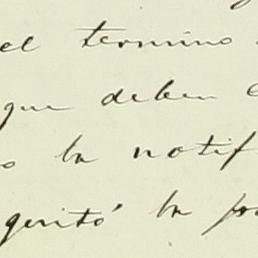 el termino
que deben
o la notif
gentó la